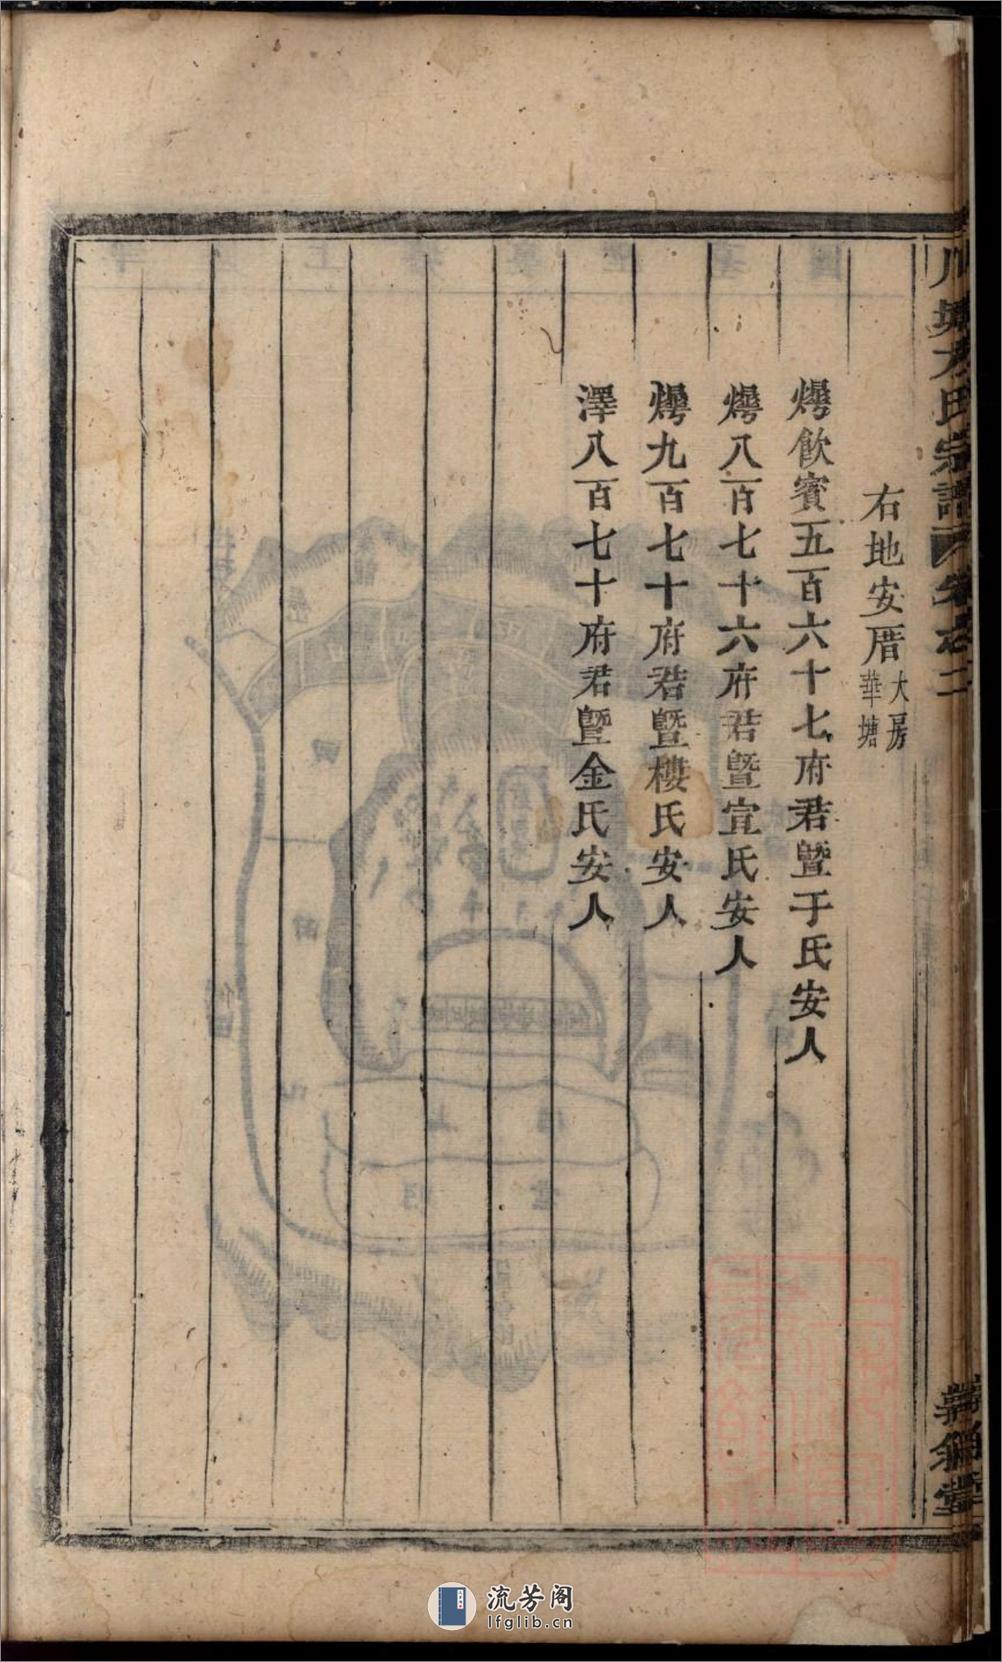 右地安厝大房華塘
爗飲賓五百六十七府君曁于氏安人
爗八百七十六府君曁宣氏安人
爗九百七十府君曁樓氏安人
澤八百七十府君曁金氏安人
方氏宗譜
流芳阁
lfglib.cn